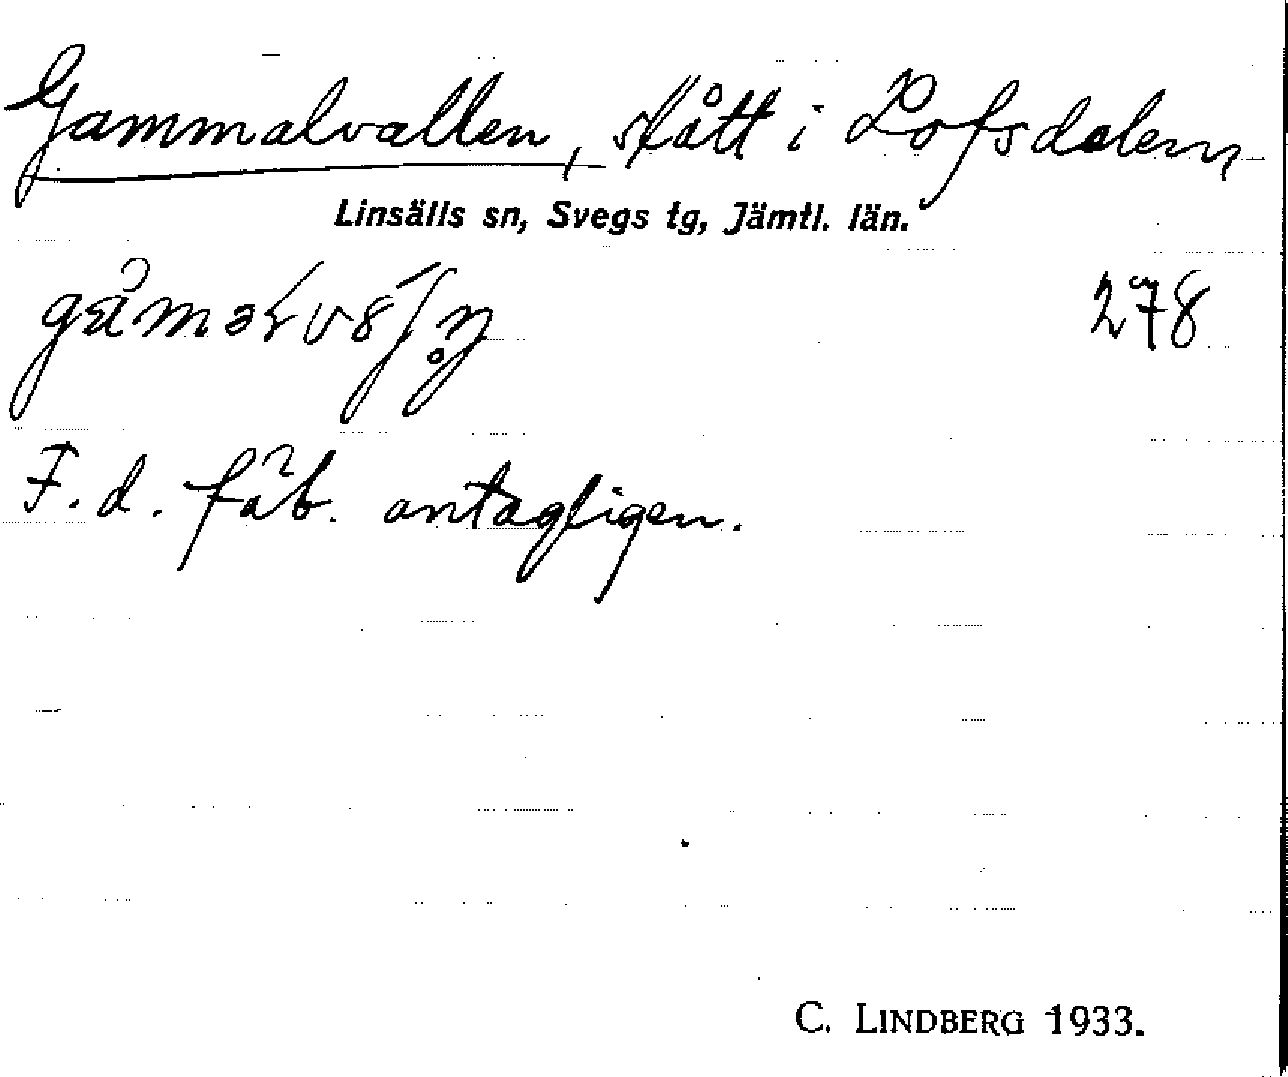 Gammalvallen, slått i Lofsdalen
Linsälls sn, Svegs tg, Jämtl. län.
278
F. d. fäb. antagligen.
C. LINDBERG 1933.